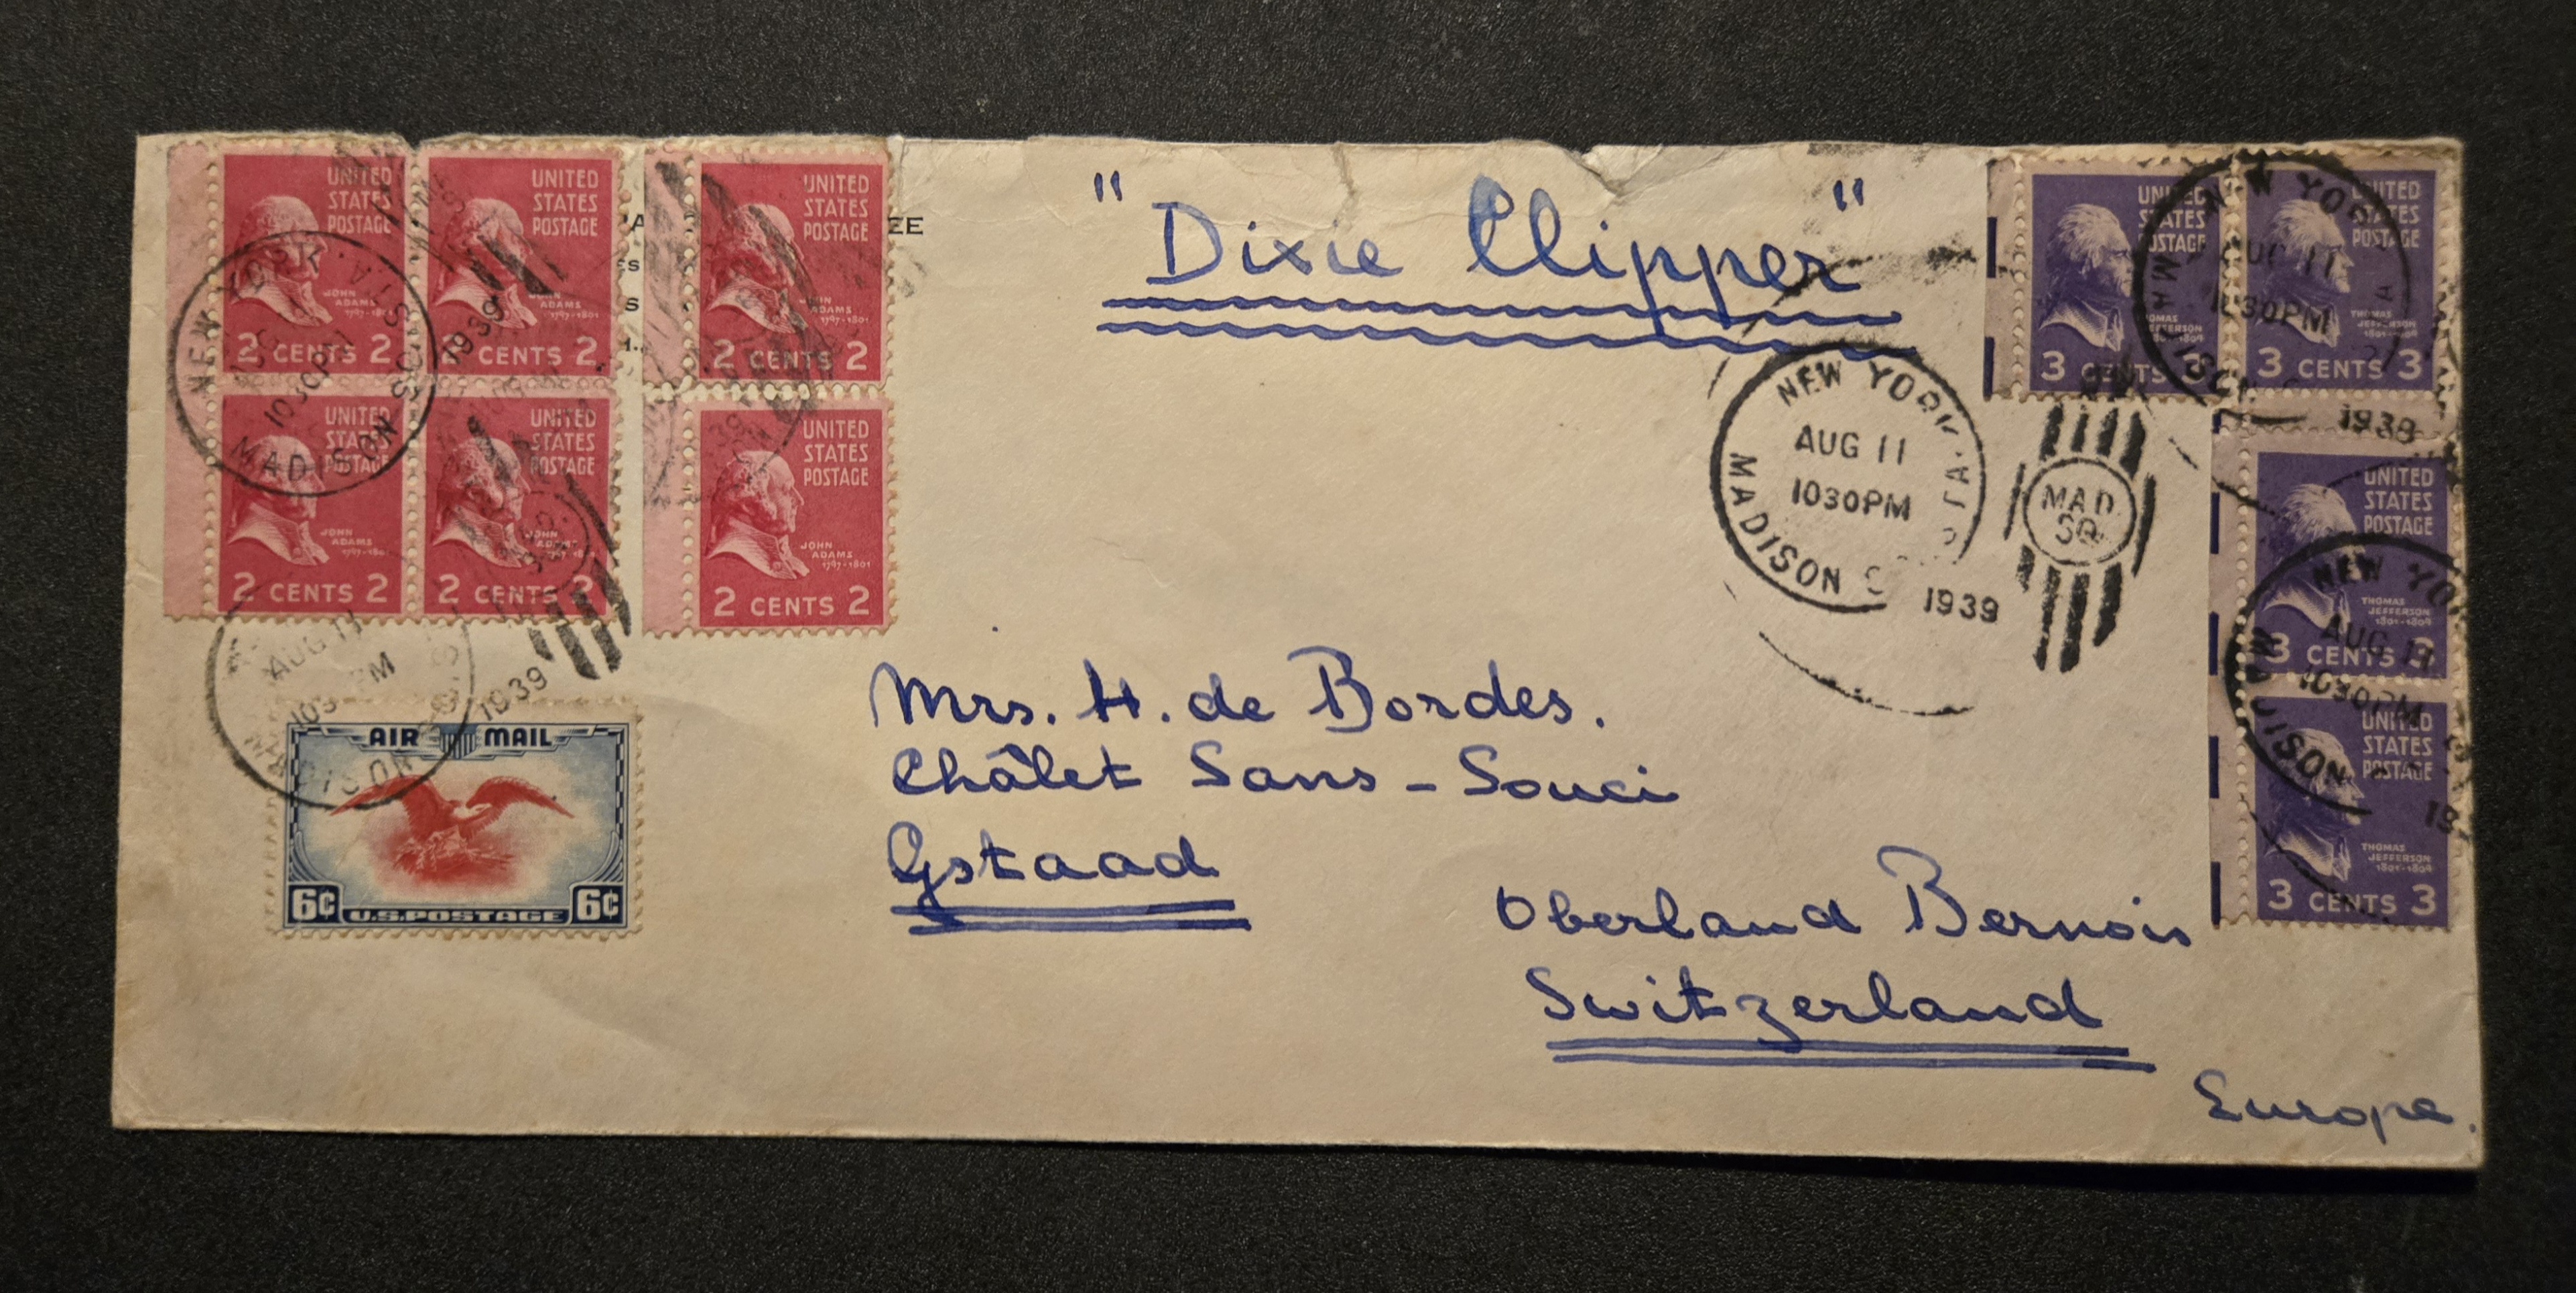 UNITED
STATES
POSTAGE
JOHN
ADAMS
1797-1801
2 CENTS 2
UNITED
STATES
POSTAGE
JOHN
ADAMS
2 CENTS 2
UNITED
STATES
POSTAGE
ADAMS
1797-1801
2 CENTS 2
UNITED
STATES
POSTAGE
JOHN
ADAMS
2 CENTS 2
UNITED
STATES
POSTAGE
JOHN
ADAMS
2 CENTS 2
UNITED
STATES
POSTAGE
JOHN
ADAMS
1797-1801
2 CENTS 2
NEW YORK
STA.
1030PM
MADISON
1939
AUG 11
PM
1939
AIR MAIL
6¢ U.S. POSTAGE 6¢
EE
"Dixie Clipper"
NEW YORK
AUG 11
1030PM
MADISON
1939
MAD.
SQ.
UNITED
STATES
POSTAGE
THOMAS
JEFFERSON
3 CENTS 3
UNITED
STATES
POSTAGE
THOMAS
JEFFERSON
1801-1809
3 CENTS 3
NEW YORK
AUG 11
1030PM
1939
UNITED
STATES
POSTAGE
THOMAS
JEFFERSON
1801-1809
3 CENTS 3
UNITED
STATES
POSTAGE
THOMAS
JEFFERSON
1801-1809
3 CENTS 3
NEW YO
AUG 11
1030PM
MADISON
19
Mrs. H. de Bordes.
Châlet Sans-Souci
Gstaad
Oberland Bernois
Switzerland
Europe.